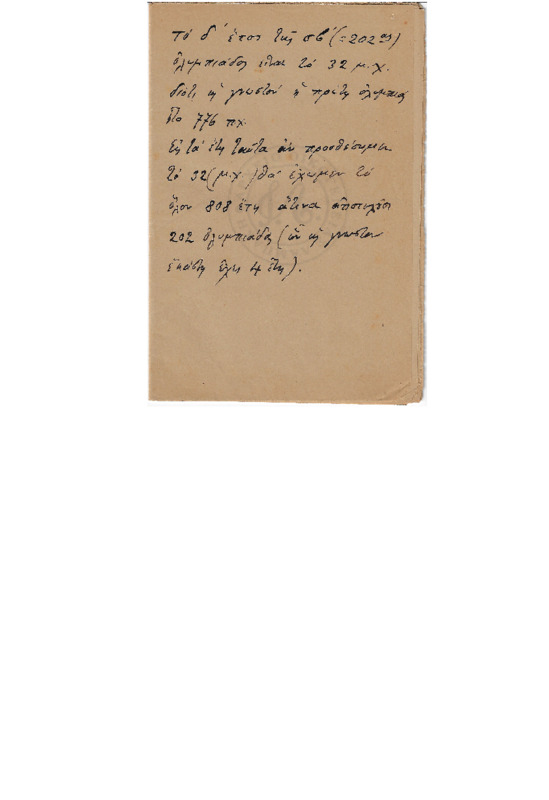 τὸ δ' ἔτος τῆς σβ' (=202ας)
ὀλυμπιάδος εἶναι τὸ 32 μ.χ.
διότι ὡς γνωστὸν ἡ πρώτη ὀλυμπιὰς
ἦτο 776 π.χ.
Εἰς τὰ ἔτη ταῦτα ἂν προσθέσωμεν
τὸ 32 (μ.χ.) θὰ ἔχωμεν τὸ
ὅλον 808 ἔτη ἅτινα ἀποτελοῦσι
202 ὀλυμπιάδας (ὧν ὡς γνωστὸν
ἑκάστη ἔχει 4 ἔτη).